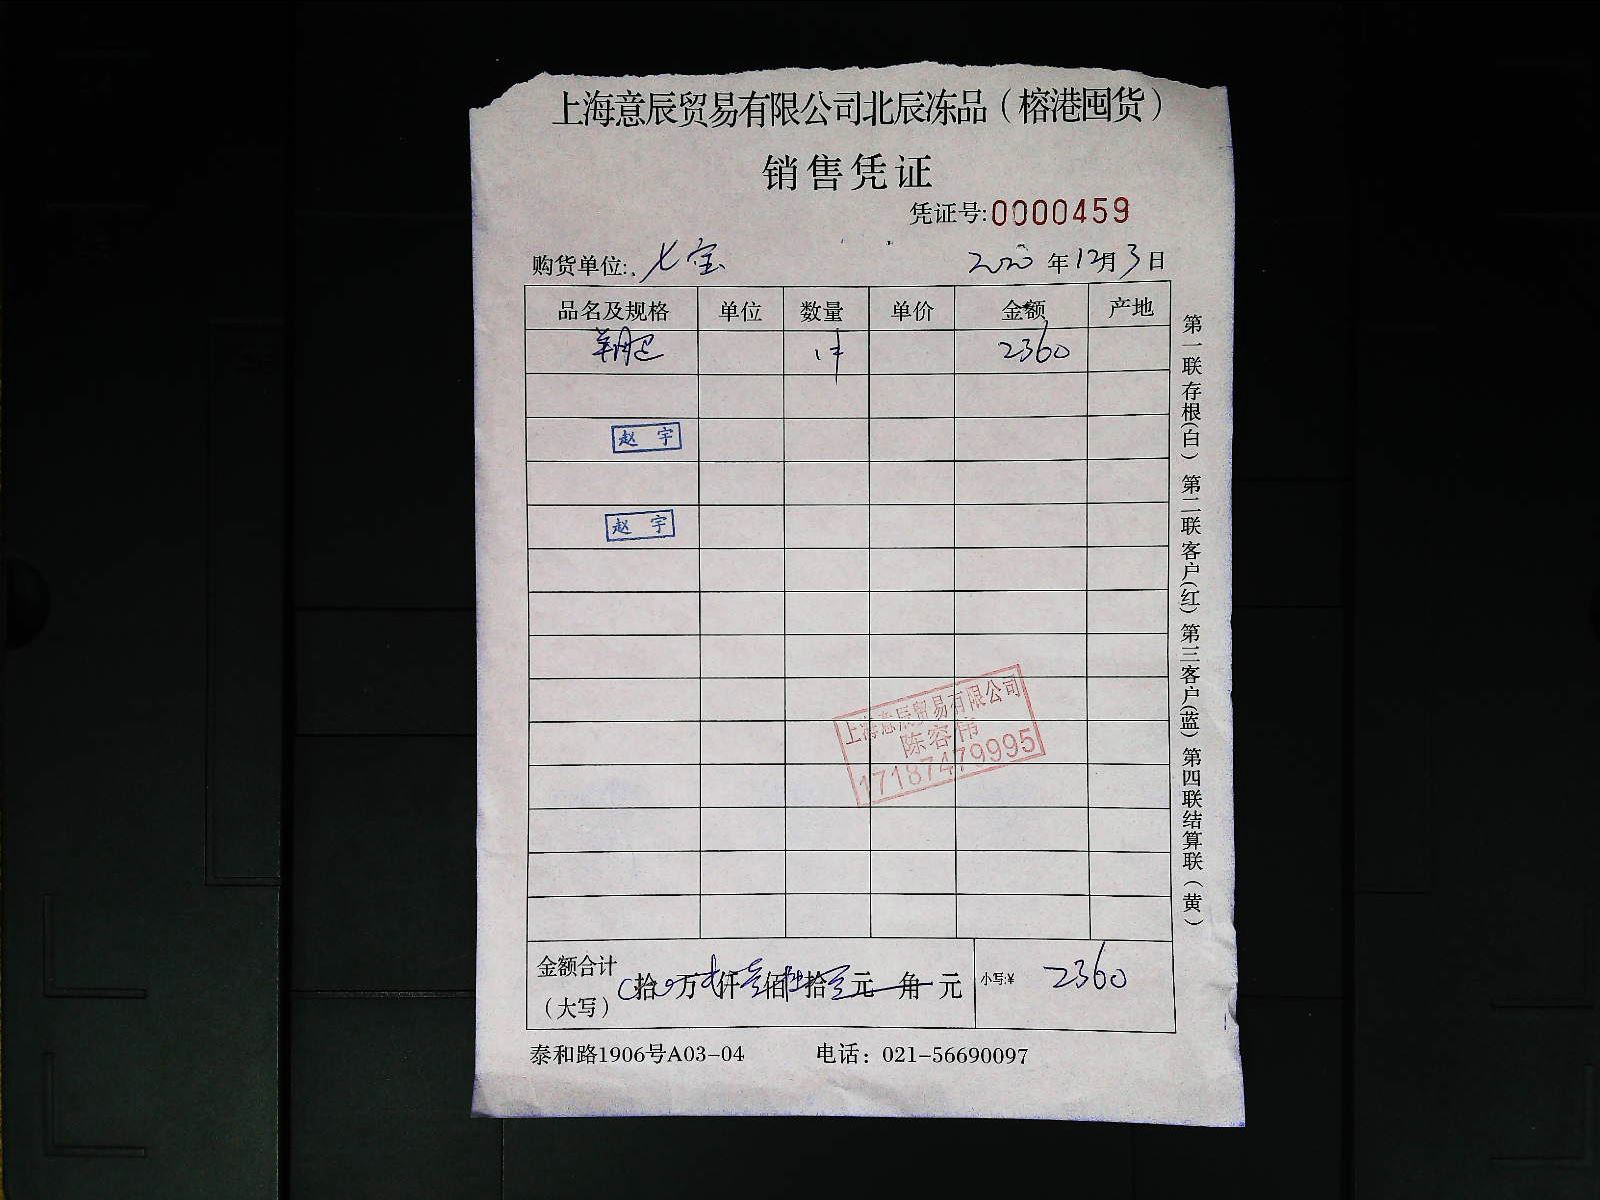 上海意辰贸易有限公司北辰冻品（榕港囤货）
销售凭证
凭证号:0000459
购货单位: 七宝 2020 年 12 月 3 日
品名及规格 单位 数量 单价 金额 产地
1件 2360
赵 宇
赵 宇
上海意辰贸易有限公司
陈容伟
17187479995
金额合计（大写） 拾 万 仟 佰 拾 元 角 元 小写:¥ 2360
泰和路1906号A03-04 电话：021-56690097
第一联存根(白) 第二联客户(红) 第三客户(蓝) 第四联结算联(黄)